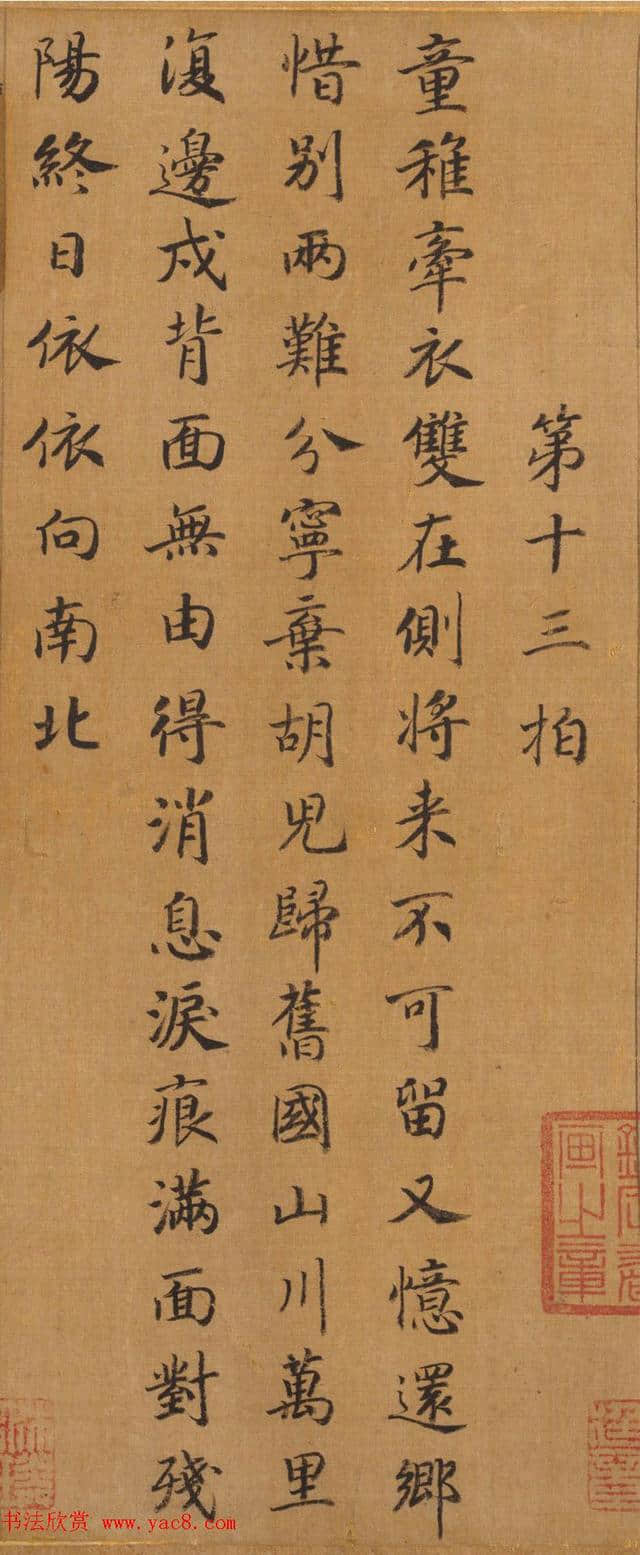 第十三拍
童稚牽衣雙在側将来不可留又憶還鄉
惜别兩難分寧棄胡兒歸舊國山川萬里
復邊戍背面無由得消息淚痕滿面對殘
陽終日依依向南北
书法欣赏 www.yac8.com